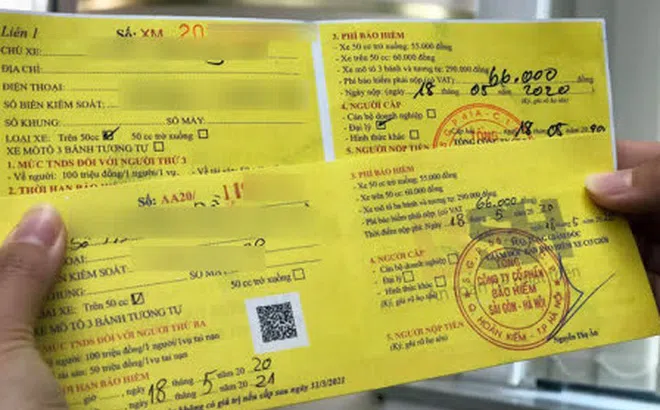 Liên 1
Số: XM 20
CHỦ XE:
ĐỊA CHỈ
ĐIỆN THOẠI:
SỐ BIỂN KIỂM SOÁT:
SỐ KHUNG: SỐ MÁY:
LOẠI XE: Trên 50cc 50 cc trở xuống:
XE MÔTÔ 3 BÁNH TƯƠNG TỰ
1. MỨC TNDS ĐỐI VỚI NGƯỜI THỨ 3
- Về người: 100 triệu đồng/1 người/1 vụ. - Về tài
2. THỜI HẠN BẢO
3. PHÍ BẢO HIỂM
- Xe 50 cc trở xuống: 55.000 đồng
- Xe trên 50 cc: 60.000 đồng
- Xe mô tô 3 bánh và tương tự: 290.000 đồng
- Phí bảo hiểm phải nộp (có VAT) 66.000 đồng
- Ngày nộp, (ngày 18 tháng 05 năm 2020
4. NGƯỜI CẤP (Ký, ghi rõ họ tên)
- Cán bộ doanh nghiệp
- Đại lý
- Hình thức khác: 18 05
5. NGƯỜI NỘP TIỀN
Số: AA20/
BIỂN KIỂM SOÁT:
KHUNG: SỐ
XE: Trên 50 cc 50 cc trở xuống
XE MÔ TÔ 3 BÁNH TƯƠNG TỰ
MỨC TNDS ĐỐI VỚI NGƯỜI THỨ BA
người: 100 triệu đồng/1 người/1vụ tai nạn
tài sản: 50 triệu đồng/1 vụ tai nạn
THỜI HẠN BẢO HIỂM
giờ ngày 18 tháng 5 năm 20 20
năm 20 21
có giá trị nếu cấp sau ngày 31/3/2021
3. PHÍ BẢO HIỂM
- Xe 50 cc trở xuống: 55.000 đồng
- Xe trên 50 cc: 60.000 đồng
- Xe mô tô ba bánh và tương tự: 290.000 đồng
- Phí bảo hiểm phải nộp (có VAT) 66.000
Thời điểm nộp: 18 5 20
4. NGƯỜI CẤP
- Cán bộ doanh nghiệp
- Đại lý
- Hình thức khác:
(Ký, ghi rõ họ tên)
5. NGƯỜI NỘP TIỀN
(Ký, ghi rõ họ tên)
TỔNG
CÔNG TY CỔ PHẦN
BẢO HIỂM
SÀI GÒN - HÀ NỘI
Q. HOÀN KIẾM - T.P HÀ NỘI